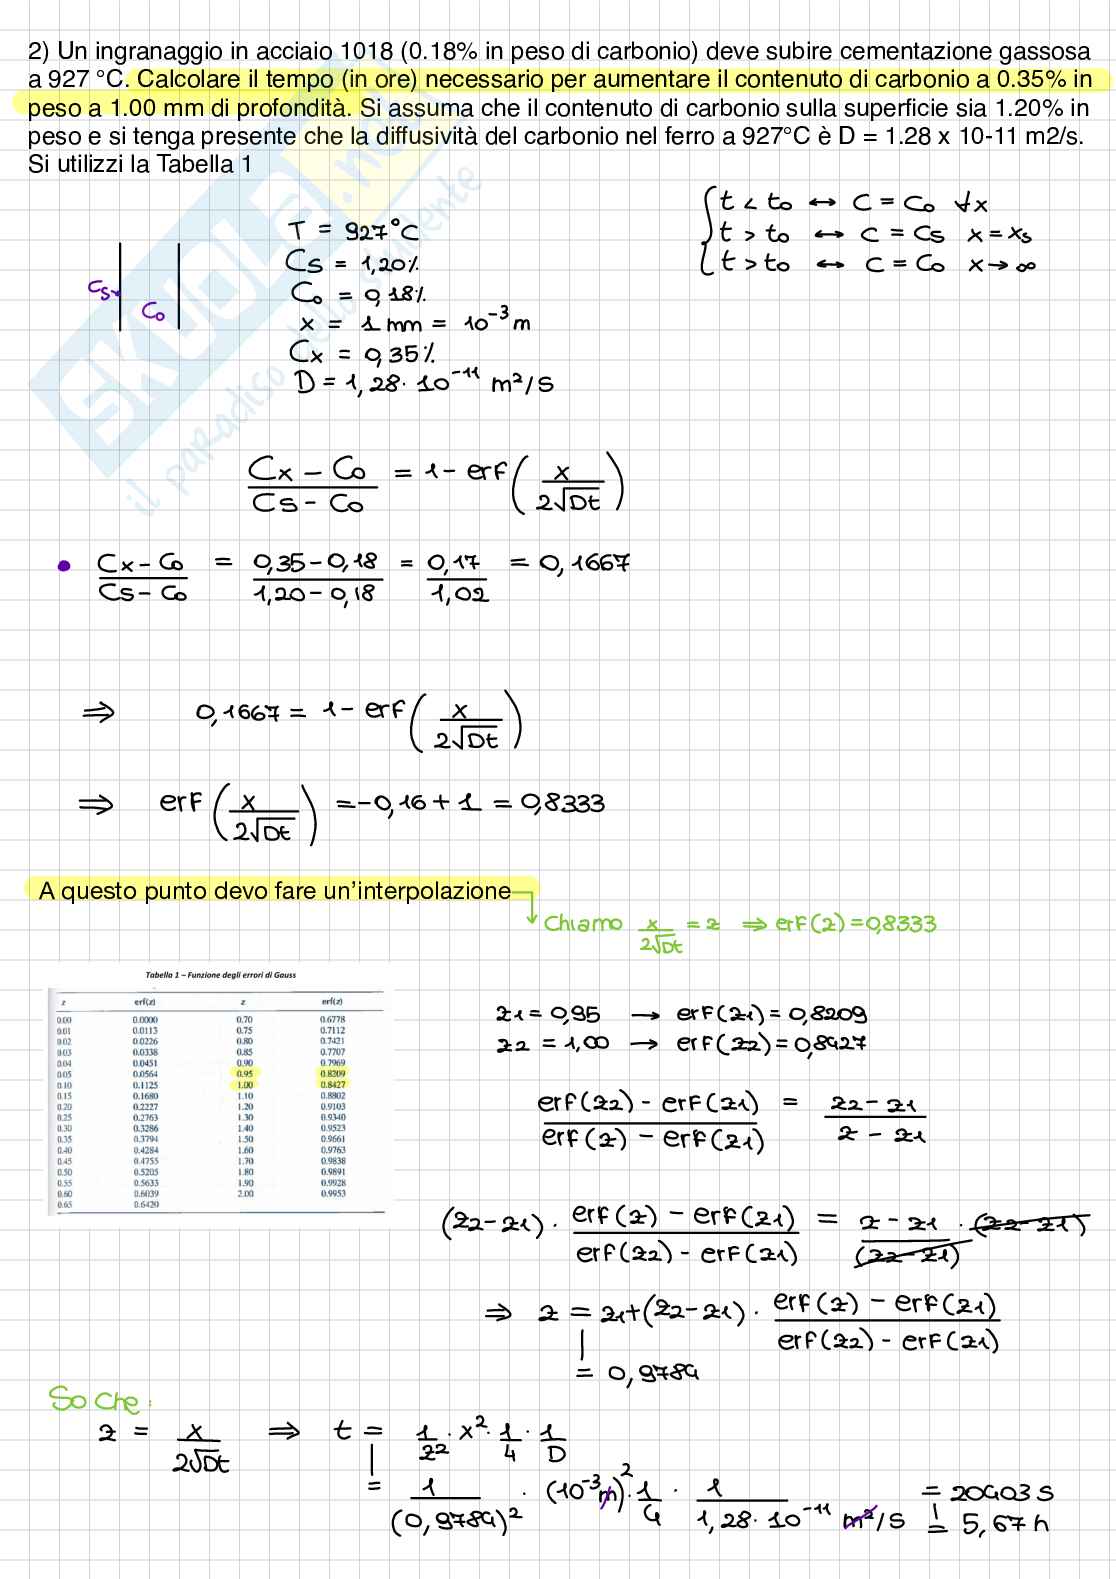 2) Un ingranaggio in acciaio 1018 (0.18% in peso di carbonio) deve subire cementazione gassosa
a 927 °C. Calcolare il tempo (in ore) necessario per aumentare il contenuto di carbonio a 0.35% in
peso a 1.00 mm di profondità. Si assuma che il contenuto di carbonio sulla superficie sia 1.20% in
peso e si tenga presente che la diffusività del carbonio nel ferro a 927°C è D = 1.28 x 10-11 m2/s.
Si utilizzi la Tabella 1
SKUOLA.net
il paradiso dello studente
t < to ↔ C = Co ∀x
t > to ↔ C = Cs x = xs
t > to ↔ C = Co x → ∞
Cs
Co
T = 927°C
Cs = 1,20%
Co = 0,18%
x = 1 mm = 10⁻³ m
Cx = 0,35%
D = 1,28 · 10⁻¹¹ m²/s
(Cx - Co)/(Cs - Co) = 1 - erf(x/(2√Dt))
• (Cx - Co)/(Cs - Co) = (0,35 - 0,18)/(1,20 - 0,18) = 0,17/1,02 = 0,1667
⇒ 0,1667 = 1 - erf(x/(2√Dt))
⇒ erf(x/(2√Dt)) = -0,16 + 1 = 0,8333
A questo punto devo fare un'interpolazione
Chiamo x/(2√Dt) = z ⇒ erf(z) = 0,8333
Tabella 1 – Funzione degli errori di Gauss
z erf(z) z erf(z)
0.00 0.0000 0.70 0.6778
0.01 0.0113 0.75 0.7112
0.02 0.0226 0.80 0.7421
0.03 0.0338 0.85 0.7707
0.04 0.0451 0.90 0.7969
0.05 0.0564 0.95 0.8209
0.10 0.1125 1.00 0.8427
0.15 0.1680 1.10 0.8802
0.20 0.2227 1.20 0.9103
0.25 0.2763 1.30 0.9340
0.30 0.3286 1.40 0.9523
0.35 0.3794 1.50 0.9661
0.40 0.4284 1.60 0.9763
0.45 0.4755 1.70 0.9838
0.50 0.5205 1.80 0.9891
0.55 0.5633 1.90 0.9928
0.60 0.6039 2.00 0.9953
0.65 0.6420
z1 = 0,95 → erf(z1) = 0,8209
z2 = 1,00 → erf(z2) = 0,8427
(erf(z2) - erf(z1))/(erf(z) - erf(z1)) = (z2 - z1)/(z - z1)
(z2 - z1) · (erf(z) - erf(z1))/(erf(z2) - erf(z1)) = (z - z1)/(z2 - z1) · (z2 - z1)
⇒ z = z1 + (z2 - z1) · (erf(z) - erf(z1))/(erf(z2) - erf(z1))
= 0,9784
So che:
z = x/(2√Dt) ⇒ t = 1/z² · x² · 1/4 · 1/D
= 1/(0,9784)² · (10⁻³ m)² · 1/4 · 1/(1,28 · 10⁻¹¹ m²/s) = 20403 s
= 5,67 h